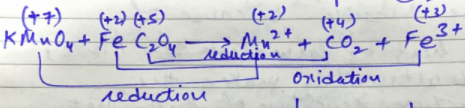 (+7) (+2) (+5) (+2) (+4) (+3)
KMnO₄ + Fe C₂O₄ → Mn²⁺ + CO₂ + Fe³⁺
reduction
oxidation
reduction